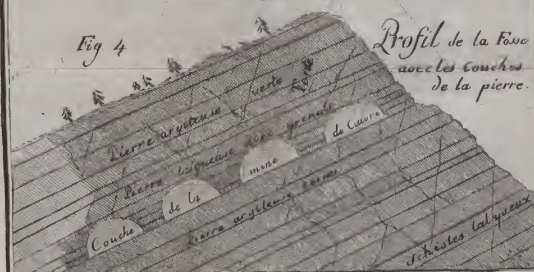 Fig. 4
Profil de la Fosse
avec les Couches
de la pierre.
Pierre argileuse verte
Pierre talqueuse avec grenats
Couche de la mine de Cuivre
Pierre argileuse
Schistes talqueux